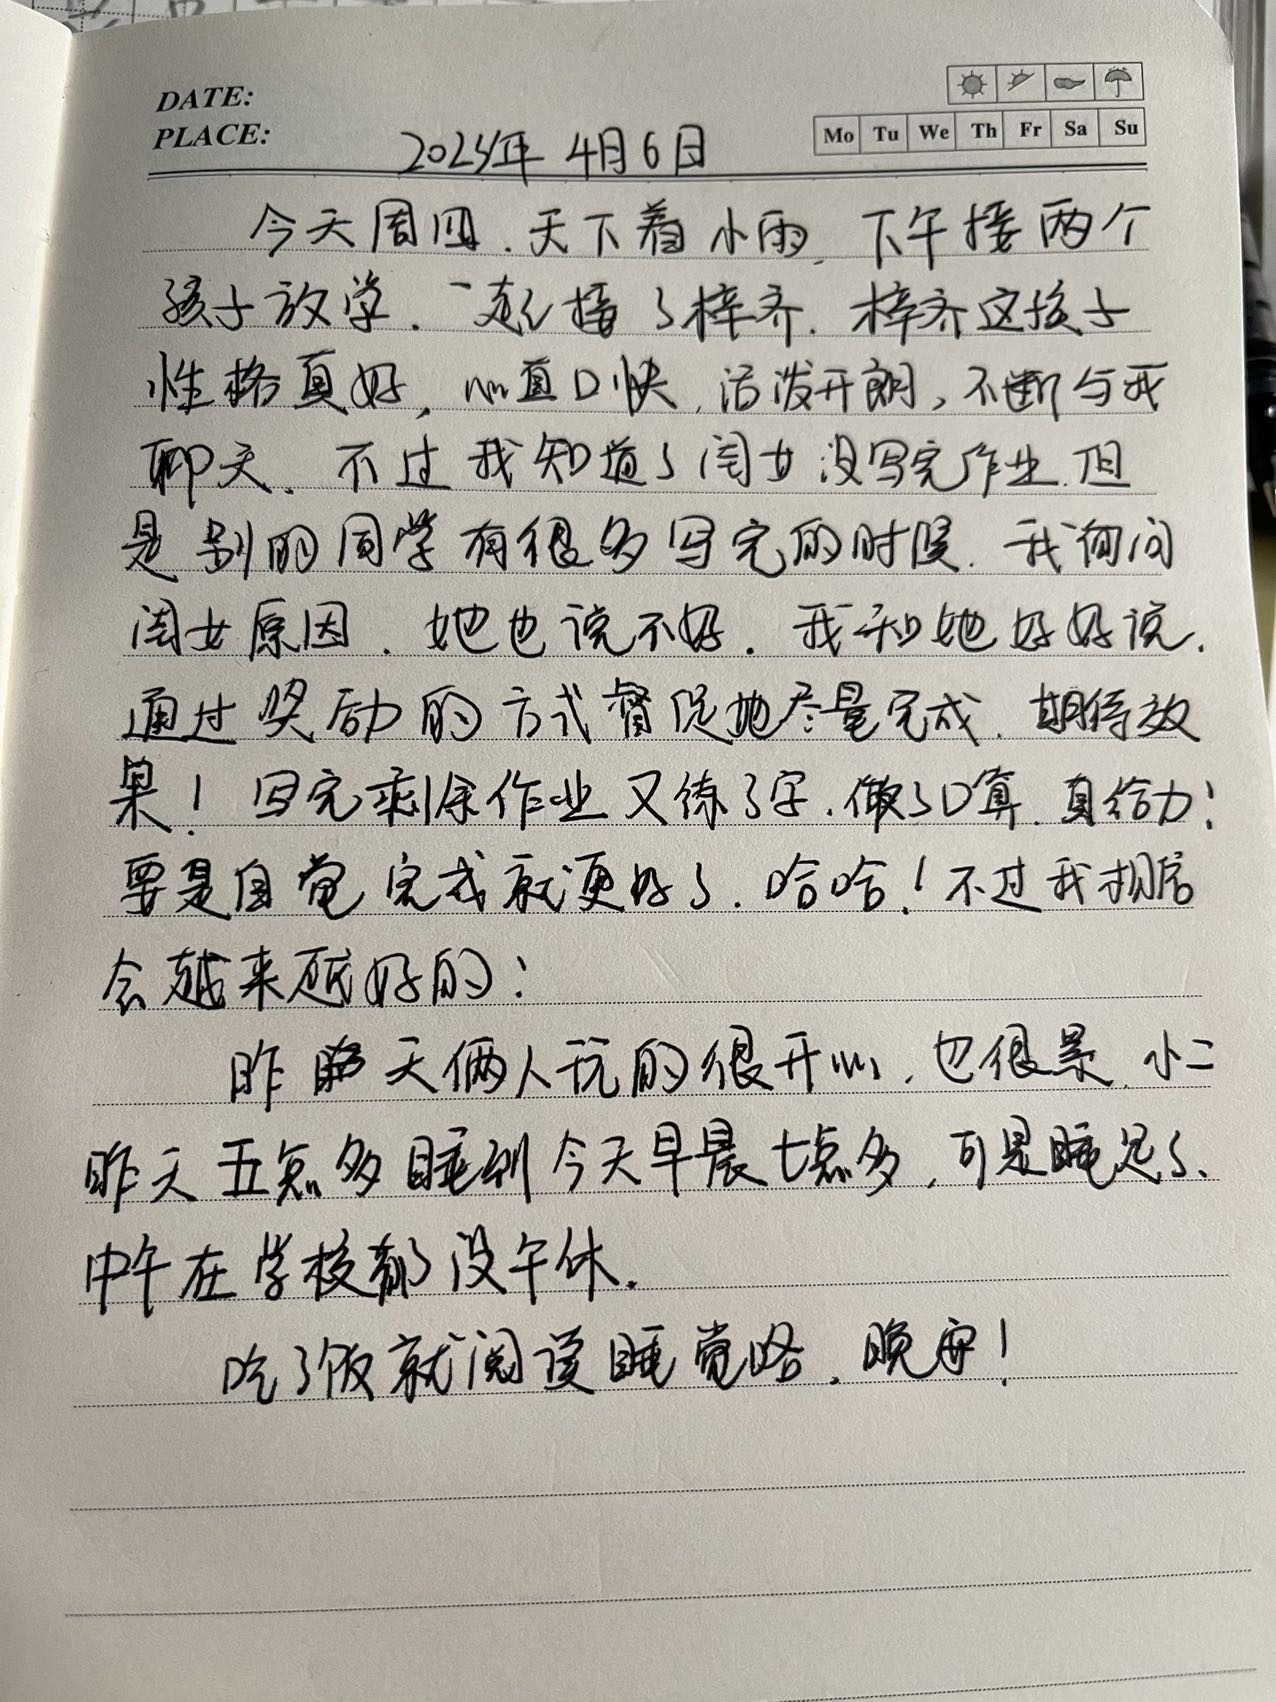 DATE:
PLACE:
Mo Tu We Th Fr Sa Su
年4月6日
今天周四、天下着小雨、下午接两个
孩子放学、一起接了梓齐、梓齐这孩子
性格真好，心直口快，活泼开朗，不断与我
聊天、不过我知道了闺女没写完作业、但
是别的同学有很多写完的时候、我询问
闺女原因、她也说不好。我和她好好说、
通过奖励的方式督促她尽量完成、期待效
果！写完剩余作业又练了字、做了口算、真给力！
要是自觉完成就更好了、哈哈！不过我相信
会越来越好的！
昨天俩人玩的很开心、也很累、小二
昨天五点多睡到今天早晨七点多，可是睡足了、
中午在学校都没午休。
吃了饭就阅读睡觉咯、晚安！